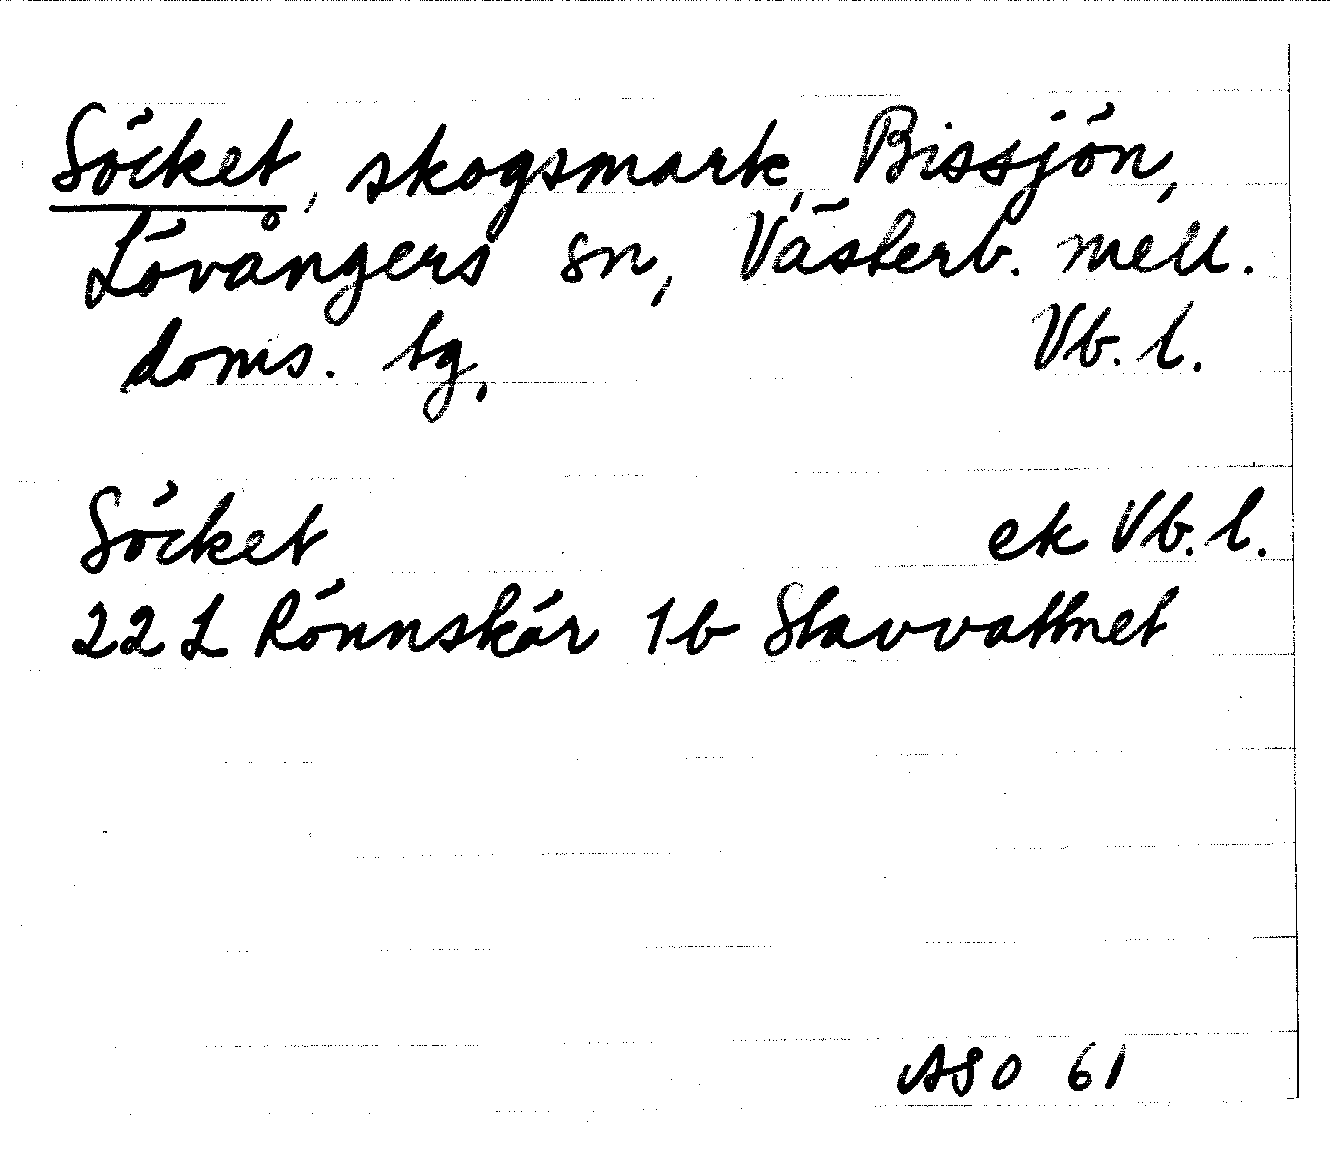 Söcket, skogsmark, Bissjön,
Lövångers sn, Västerb. mell.
doms. tg. Vb. l.
Söcket ek Vb. l.
22 L Rönnskär 1b Stavvattnet
ASO 61